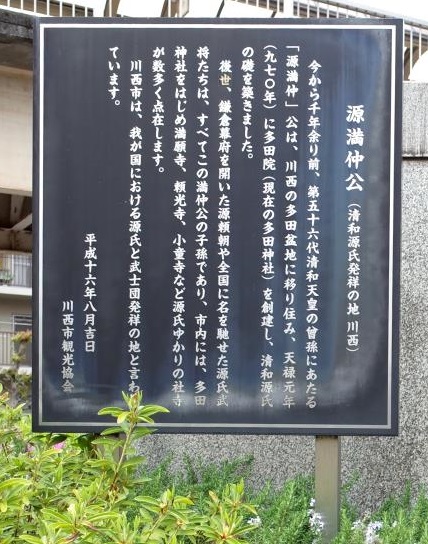 源満仲公（清和源氏発祥の地 川西）
今から千年余り前、第五十六代清和天皇の曾孫にあたる
「源満仲」公は、川西の多田盆地に移り住み、天禄元年
（九七〇年）に多田院（現在の多田神社）を創建し、清和源氏
の礎を築きました。
後世、鎌倉幕府を開いた源頼朝や全国に名を馳せた源氏武
将たちは、すべてこの満仲公の子孫であり、市内には、多田
神社をはじめ満願寺、頼光寺、小童寺など源氏ゆかりの社寺
が数多く点在します。
川西市は、我が国における源氏と武士団発祥の地と言わ
ています。
平成十六年八月吉日
川西市観光協会